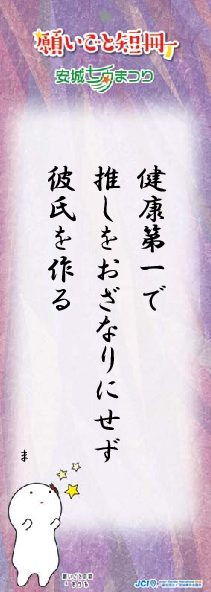 願いごと短冊
安城七夕まつり
健康第一で
推しをおざなりにせず
彼氏を作る
ま
JCI